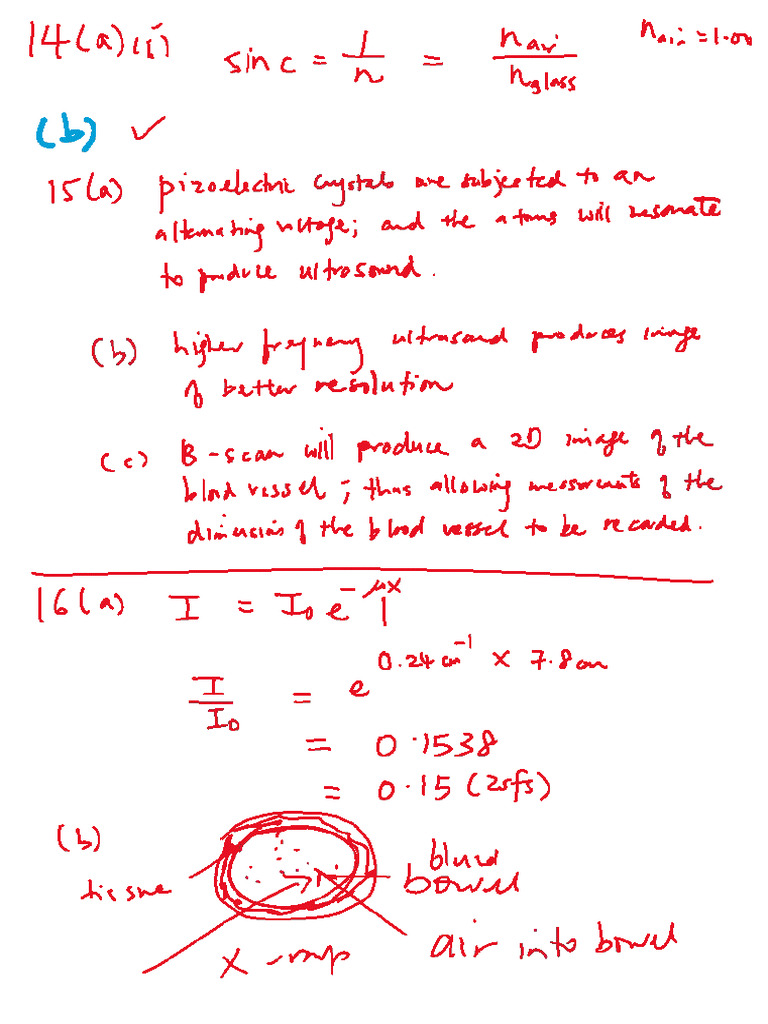 14(a)(i) sin c = 1/n = n_air/n_glass n_air = 1.00
(b) ✓
15(a) pizoelectric crystals are subjected to an
alternating voltage; and the atoms will resonate
to produce ultrasound.
(b) higher frequency ultrasound produces image
of better resolution
(c) B-scan will produce a 2D image of the
blood vessel; thus allowing measurements of the
dimensions of the blood vessel to be recorded.
16(a) I = I₀ e^-μx
I/I₀ = e^0.24 cm⁻¹ × 7.8 cm
= 0.1538
= 0.15 (2sfs)
(b)
tissue
bowel
x-rays
air into bowel